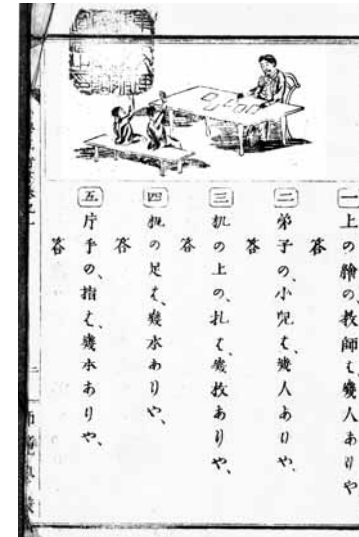 一 上の繪の、教師は、幾人ありや
答
二 弟子の、小兒は、幾人ありや、
答
三 机の上の、札は、幾枚ありや、
答
四 机の足は、幾本ありや、
答
五 片手の、指は、幾本ありや、
答